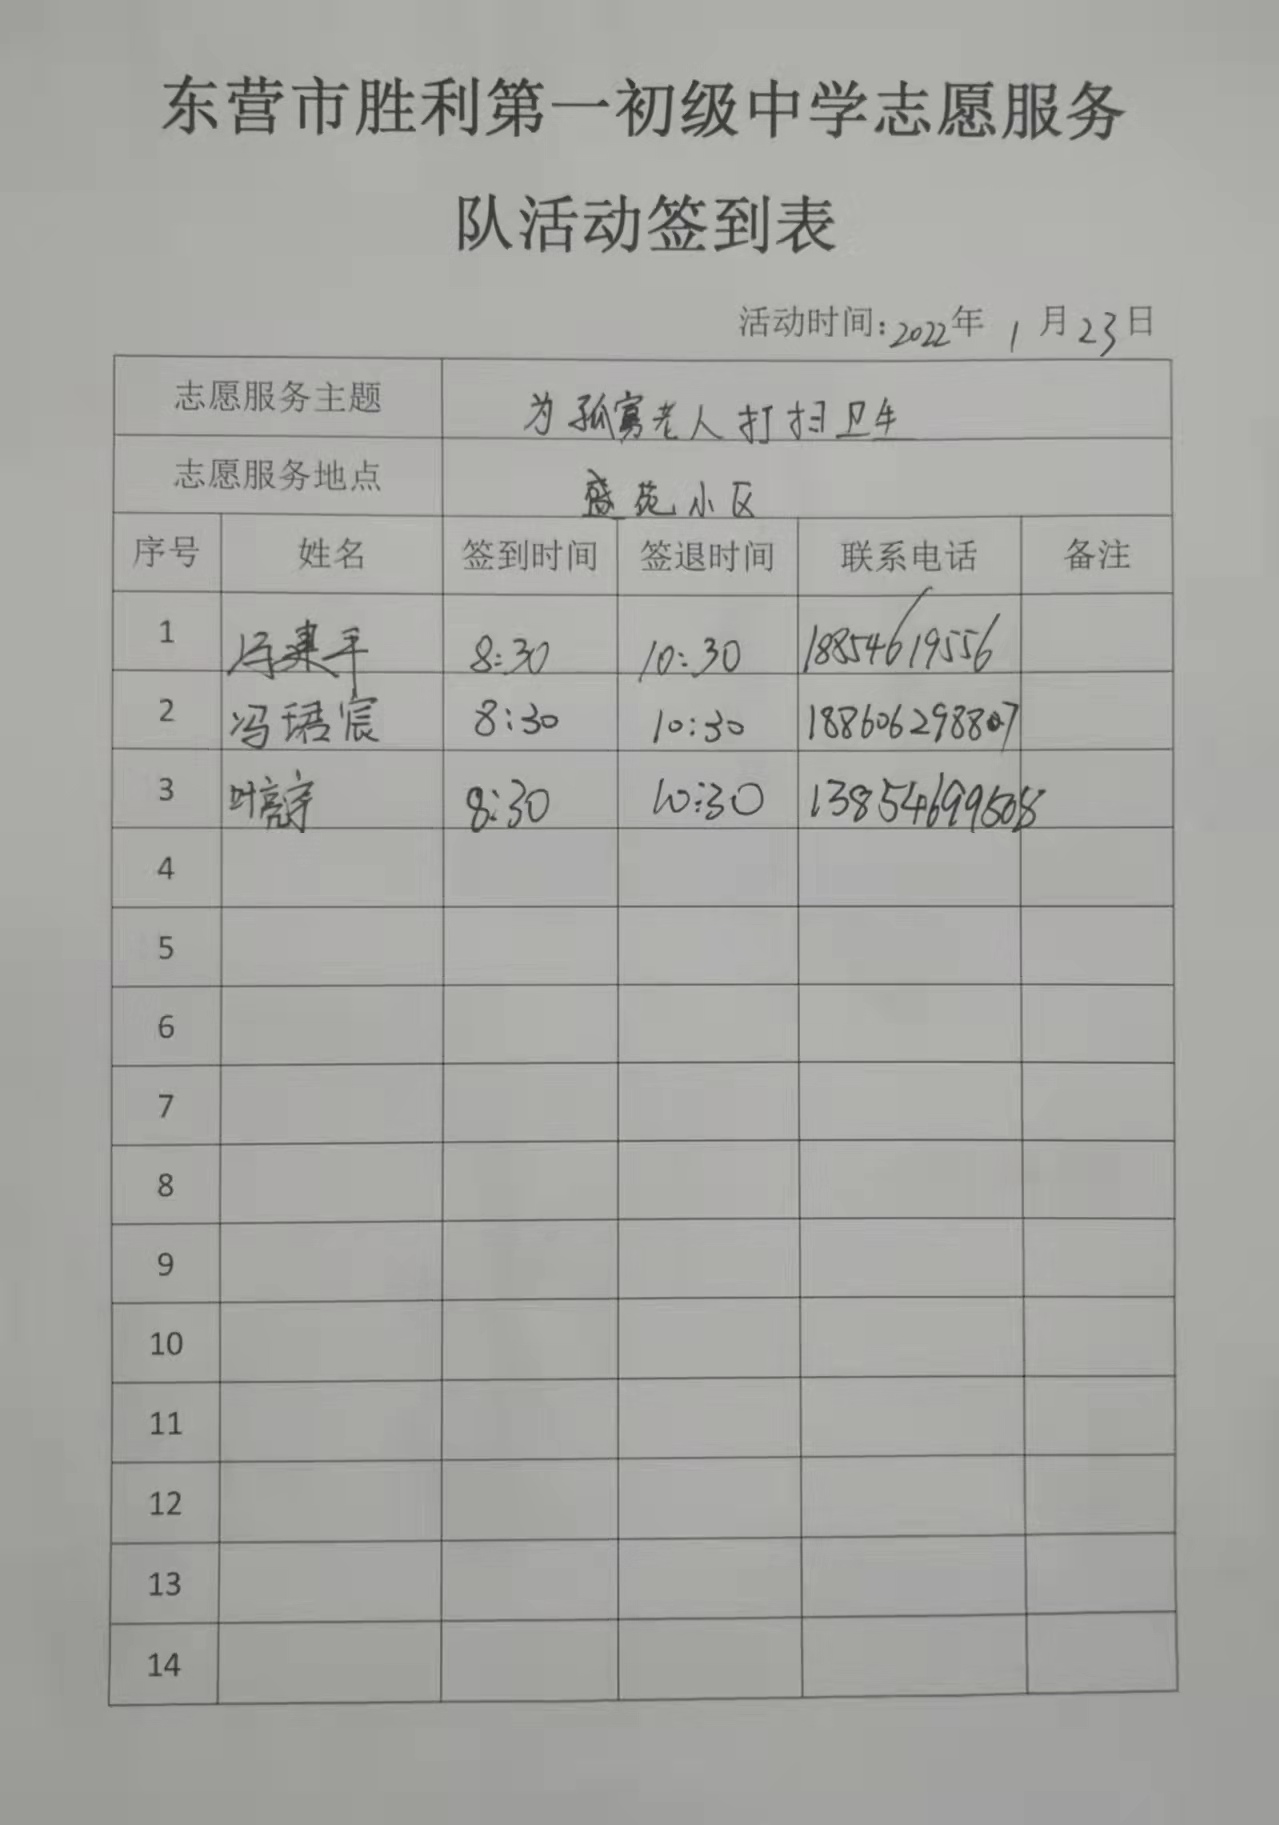 东营市胜利第一初级中学志愿服务
队活动签到表
活动时间:2022年 1 月23日
志愿服务主题 为孤寡老人打扫卫生
志愿服务地点 盛苑小区
序号 姓名 签到时间 签退时间 联系电话 备注
1 冯建平 8:30 10:30 18854619556
2 冯珺宸 8:30 10:30
3 叶高宇 8:30 10:30
4
5
6
7
8
9
10
11
12
13
14